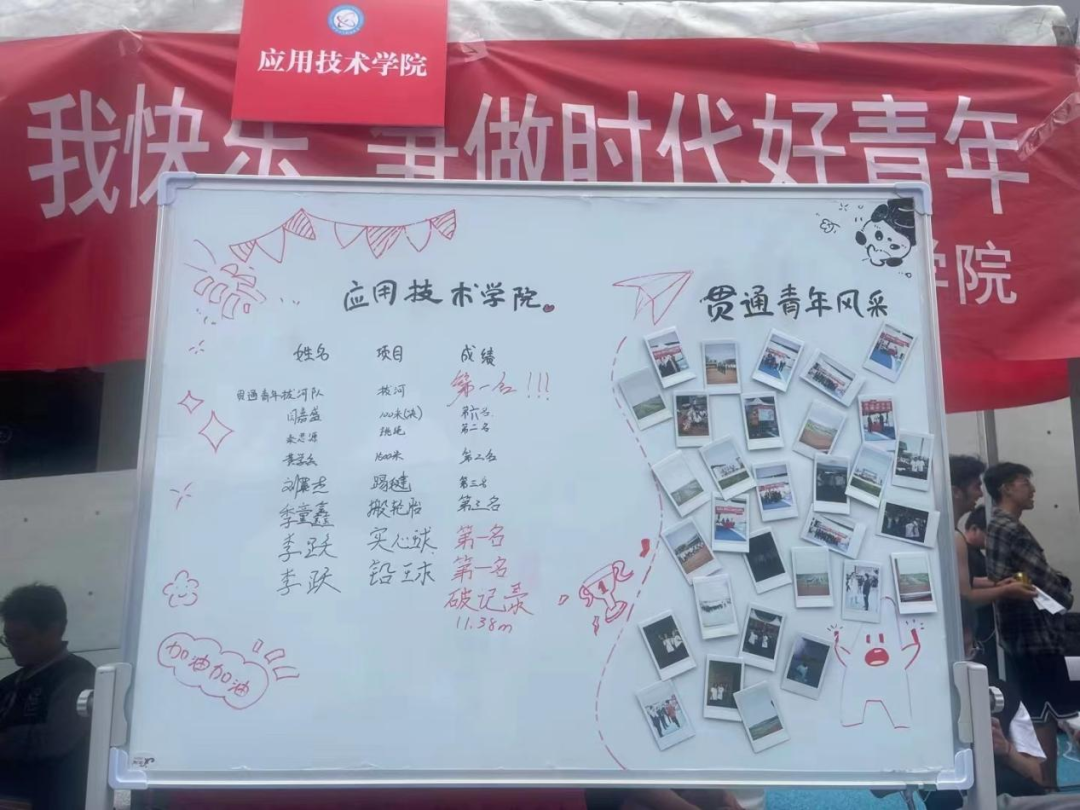 应用技术学院
我快乐 争做时代好青年
学院
应用技术学院
贯通青年风采
姓名 项目 成绩
贯通青年拔河队 拔河 第一名!!!
100米(决) 第六名
跳绳 第二名
1500米 第三名
踢毽 第三名
李童鑫 搬轮胎 第三名
李跃 实心球 第一名
李跃 铅球 第一名
破记录
11.38m
加油加油